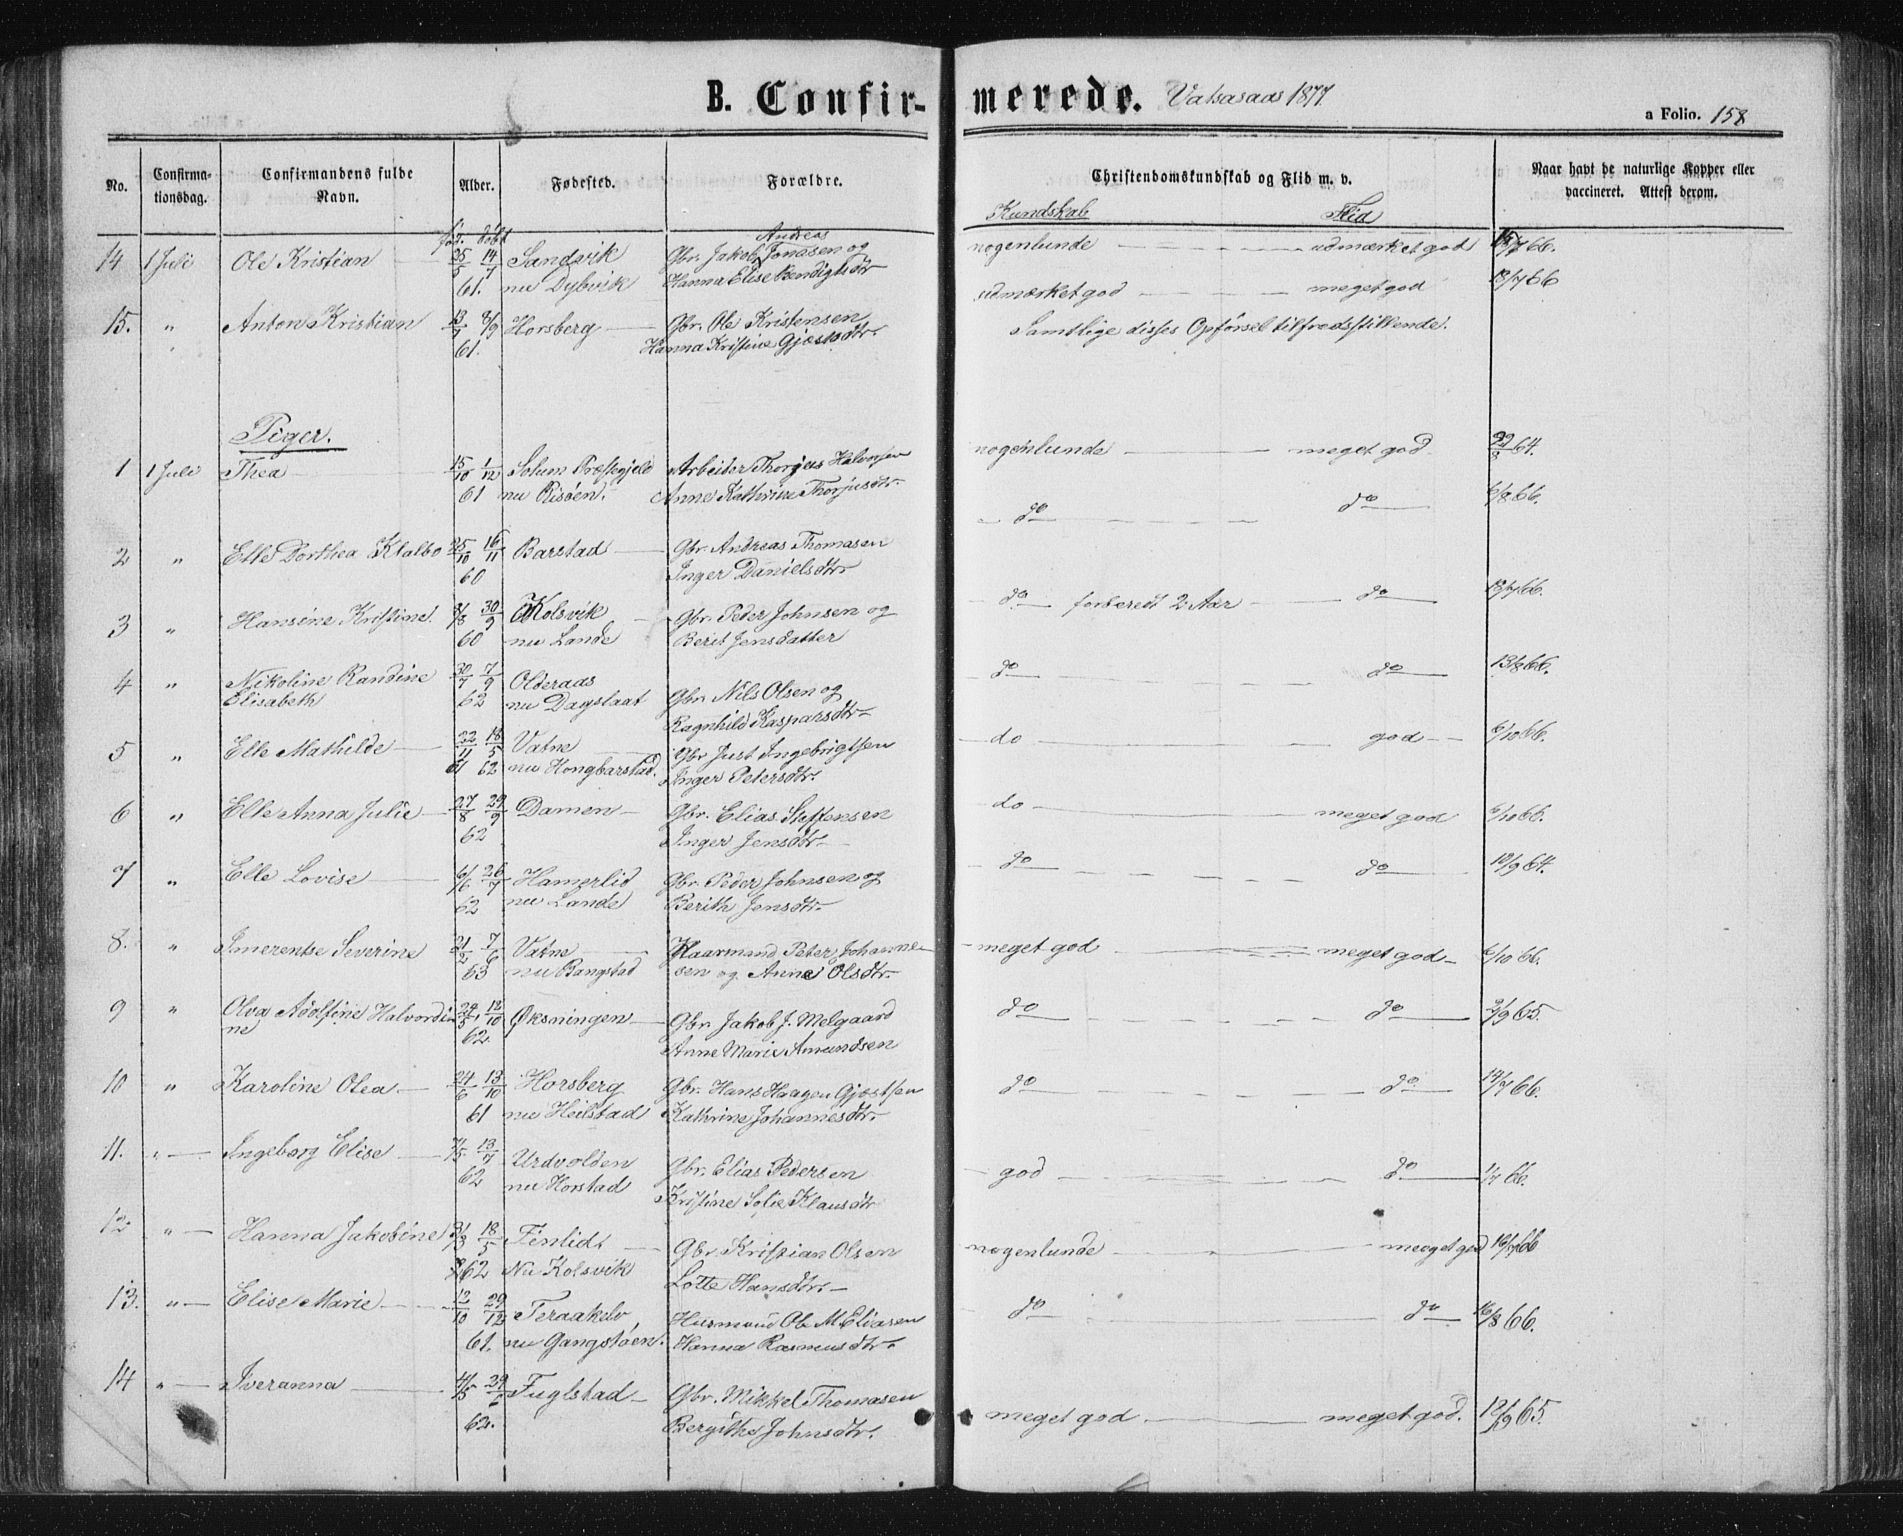 B. Confirmerede. Vatsaas 1877
a Folio. 158
No. Confirmationsdag. Confirmandens fulde Navn. Alder. Fødested. Forældre. Christendomskundskab og Flid m. v. Naar havt de naturlige Kopper eller vaccineret. Attest derom.
Kundskab Flid
fød. døbt
14 1 Juli Ole Kristian 25/5 14/7 61. Sandvik nu Dybvik Gbr. Jakob Andreas Jonassen og Hanna Elise Bendigtsdtr nogenlunde udmærket god 15/7 66.
15. " Anton Kristian 13/7 8/9 61. Horsberg Gbr. Ole Kristensen Hanna Kristine Gjæstsdtr. udmærket god meget god 18/7 66
Samtlige disses Opførsel tilfredsstillende.
Piger.
1 1 Juli Thea 15/10 1/12 61 Solum Præstegjeld nu Risøen. Arbeider Thorjus Halvorsen Anne Kathrine Thorjusdtr. nogenlunde meget god 64.
2 " Elle Dorthea Klalbo 25/10 16/11 60 Barstad Gbr. Andreas Thomasen Inger Danielsdtr do do 6/8 66.
3 " Hansine Kristine. 8/8 30/9 60 Kolsvik nu Lande Gbr. Peder Johnsen og Berit Jensdatter do forberedt 2 Aar do 18/7 66.
4 " Nikoline Randine Elisabeth 30/7 7/9 62 Olderaas nu Dagslaat Gbr. Nils Olsen og Ragnhild Kaspersdtr do do 13/8 66.
5 " Elle Mathilde 22/11 61 18/5 62 Vatne nu Hongbarstad. Gbr Just Ingebrigtsen Inger Petersdtr. do god 6/10 66.
6 " Elle Anna Julie 27/8 29/9 62 Damen Gbr. Elias Steffensen Inger Jensdtr. do meget god 6/10 66.
7 " Elle Lovise 6/6 26/7 62 Hamerlid nu Lande Gbr. Peder Johnsen og Berith Jensdtr. do do 10/9 64.
8. " Imerentse Severine 21/2 7/6 63 Vatne nu Bangstad Haarmand Peter Johannesen og Anne Olsdtr. meget god meget god 6/10 66.
9 " Olva Adolfine Halvordine 29/5 12/10 62. Øksningen Gbr. Jakob J. Melgaard Anne Marie Amundsen do do 2/9 65.
10 " Karoline Olea 24/6 13/10 61 Horsberg nu Heilstad Gbr. Hans Haagen Gjæstsen Kathrine Johannesdtr. do do 14/7 66.
11. " Ingeborg Elise 13/7 62 Urdvolden nu Horstad Gbr. Elias Pedersen Kristine Sofie Klausdtr god do 1/7 66.
12 " Hanna Jakobine 18/5 62 Finlidt Nu Kolsvik Gbr. Kristian Olsen Lotte Hansdtr. nogenlunde meeget god 16/7 66
13. " Elise Marie 12/10 29/12 61. Teraakelv nu Gangstøen. Husmand Ole M Eliasen Hanna Rasmusdtr. do do 16/8 66.
14 " Iveranna 4/5 29/ 62. Fuglstad Gbr. Mikkel Thomasen Bergithe Johnsdtr. meget god meget god. 12/9 65.